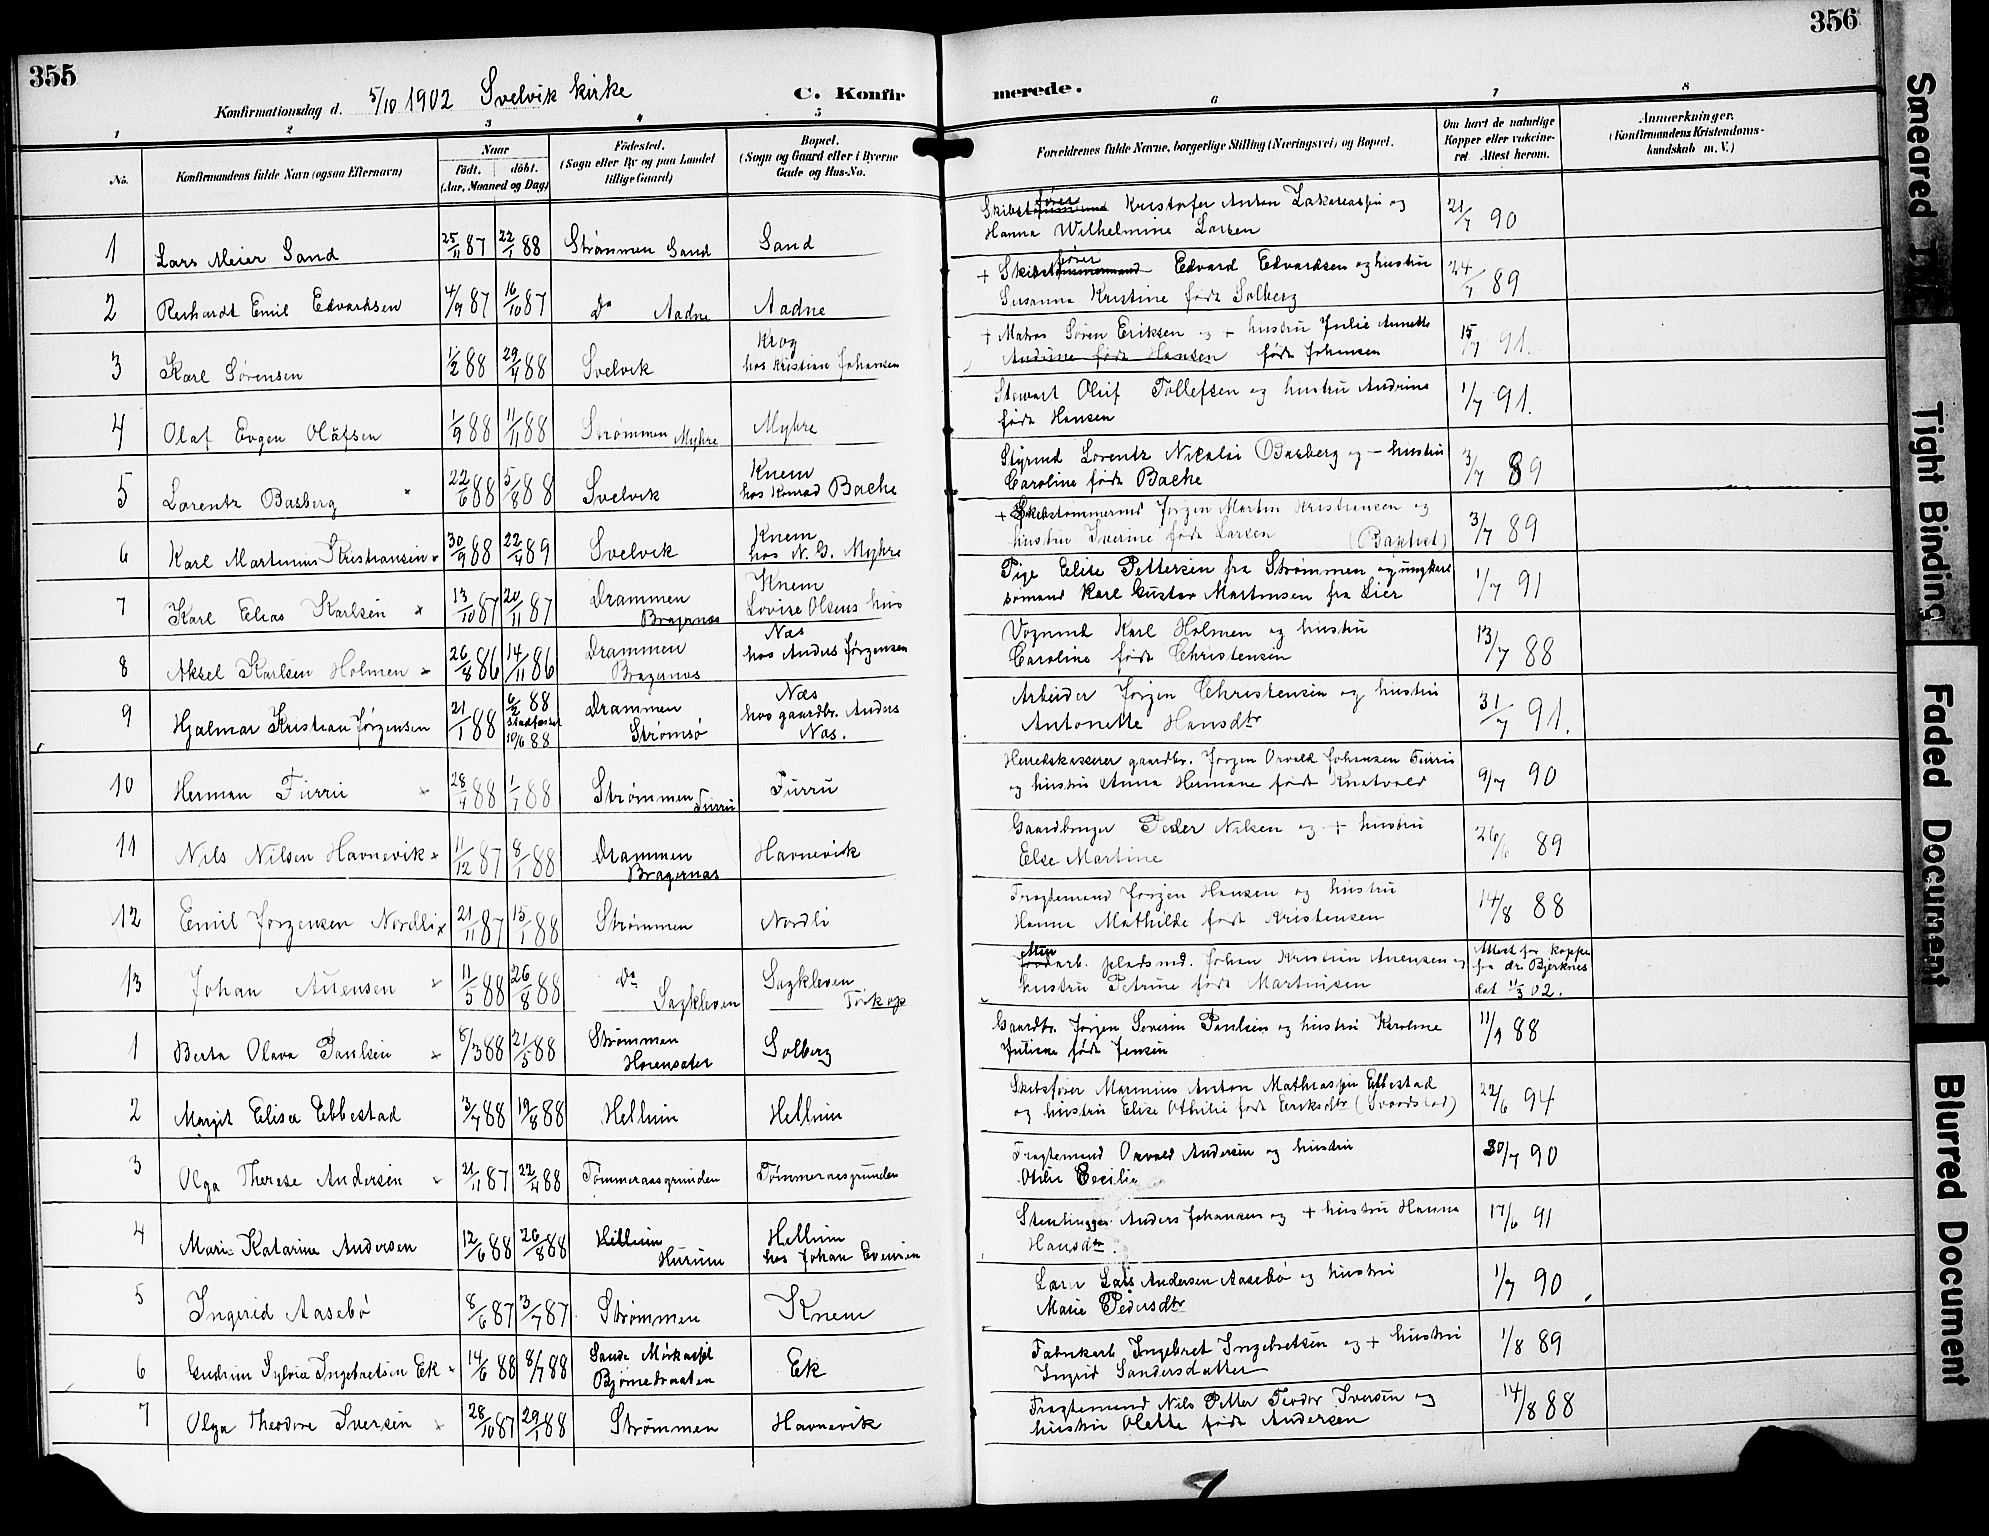 355
356
Konfirmationsdag d. 5/10 1902 Svelvik kirke
C. Konfirmerede.
1 2 3 4 5 6 7 8
No.
Konfirmandens fulde Navn (ogsaa Efternavn)
Naar
født. døbt.
(Aar, Maaned og Dag)
Fødested.
(Sogn eller By og paa Landet
tillige Gaard)
Bopæl.
(Sogn og Gaard eller i Byerne
Gade og Hus-No.
Forældrenes fulde Navne, borgerlige Stilling (Næringsvei) og Bopæl.
Om havt de naturlige
Kopper eller vakcine-
ret Attest herom.
Anmerkninger.
(Konfirmandens Kristendoms-
kundskab m. V.)
1 Lars Meier Sand 25/11 87 22/1 88 Strømmen Sand Sand
Skibsfører Kristofer Anton Zakariassen og
Hanna Wilhelmine Larsen 21/7 90
2 Reihardt Emil Edvardsen 4/9 87 16/10 87 do Aadne Aadne
+ Skibsfører Edvard Edvardsen og hustru
Susanna Kristine født Solberg 24/7 89
3 Karl Sørensen 1/2 88 29/4 88 Svelvik Krog
hos Kristian Johansen
+ Matros Søren Eriksen og + hustru Julie Annette
Andrine født Hansen født Johansen 15/7 91.
4 Olaf Evgen Olafsen 1/9 88 11/11 88 Strømmen Myhre Myhre
Stewart Oluf Tollefsen og hustru Andrine
født Hansen 1/7 91.
5 Lorentz Basberg 22/6 88 5/8 88 Svelvik Knem
hos Konrad Bache
Styrmd Lorentz Nikolai Basberg og - hustru
Caroline født Bache 3/7 89
6 Karl Martinius Kristiansen 30/9 88 22/4 89 Svelvik Knem
hos N. G. Myhre
+ Skibstømmermd Jørgen Martin Kristiansen og
hustru Iverine født Larsen (Baptist) 3/7 89
7 Karl Elias Karlsen 13/10 87 20/11 87 Drammen
Bragernæs Knem
Lovise Olsens hus
Pige Elise Pettersen fra Strømmen og ungkarl
sømand Karl Gustav Martinsen fra Lier 1/7 91
8 Aksel Karlsen Holmen 26/8 86 14/11 86 Drammen
Bragernæs Næs
hos Anders Jørgensen
Vognmd Karl Holmen og hustru
Caroline født Christensen 13/7 88
9 Hjalmar Kristian Jørgensen 21/1 88 6/2 88
stadfæstet
10/6 88 Drammen
Strømsø Næs
hos gaardbr. Anders
Næs.
Arbeider Jørgen Christensen og hustru
Antonette Hansdtr 31/7 91.
10 Herman Furru 28/4 88 1/7 88 Strømmen Furru Furru
Herredskasserer gaardbr. Jørgen Orvald Johansen Furru
og hustru Anna Hermane født Knatvold 9/7 90
11 Nils Nilsen Havnevik 11/12 87 8/1 88 Drammen
Bragernæs Havnevik
Gaardbruger Peder Nilsen og + hustru
Else Martine 26/6 89
12 Emil Jørgensen Nordli 21/11 87 15/1 88 Strømmen Nordli
Fragtemand Jørgen Hansen og hustru
Hanna Mathilde født Kristensen 14/8 88
13 Johan Auensen 11/5 88 26/8 88 do
Sagkleven Sagkleven
Torkop
arb. pladsmd. Johan Kristian Auensen og
hustru Petrine født Martinsen Attest for kopper
fra dr. Bjerknes
dat 11/3 02.
1 Berta Olava Paulsen 8/3 88 21/5 88 Strømmen
Horensæter Solberg
Gaardbr. Jørgen Severin Paulsen og hustru Karoline
Juliane født Jensen 11/9 88
2 Margit Elisa Ebbestad 3/7 88 19/8 88 Hellum Hellum
Skibsfører Marinius Anton Mathiassen Ebbestad
og hustru Elise Othilie født Eriksdtr (Svarstad) 22/6 94
3 Olga Therese Andersen 21/11 87 22/4 88 Tømmeraasgrunden Tømmeraasgrunden
Fragtemand Orvald Andersen og hustru
Otilie Cecilie 30/7 90
4 Marie Katarine Andersen 12/6 88 26/8 88 Hellum
Hurum Hellum
hos Johan Evensen
Stenhugger Anders Johansen og + hustru Hanna
Hansdtr. 17/6 91
5 Ingerid Aasebø 8/6 87 3/7 87 Strømmen Knem
Lars Andersen Aasebø og hustru
Marie Pedersdtr 1/7 90
6 Gudrun Sylvia Ingebretsen Ek 14/6 88 8/7 88 Sande
Ek
Fabrikarb Ingebret Ingebretsen og + hustru
Ingrid Sandersdatter 1/8 89
7 Olga Theodore Iversen 28/10 87 29/1 88 Strømmen Havnevik
Fragtemand Nils Petter Teodor Iversen og
hustru Olette født Andersen 14/8 88
Smeared Ink
Tight Binding
Faded Document
Blurred Document